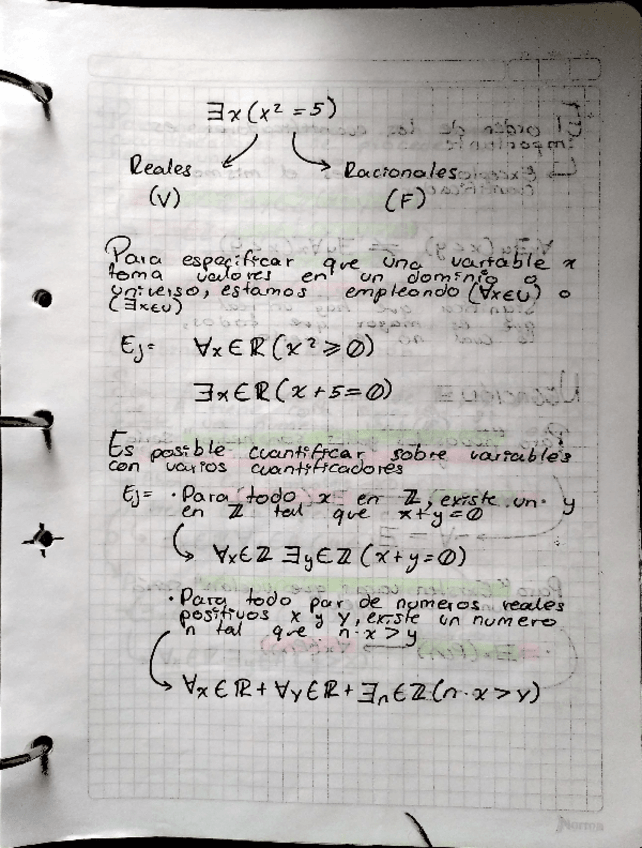 ∃x(x² = 5)
Reales Racionales
(V) (F)
Para especificar que una variable x
toma valores en un dominio o
universo, estamos empleando (∀x∈U) o
(∃x∈U)
Ej= ∀x∈ℝ(x² ≥ 0)
∃x∈ℝ(x+5=0)
Es posible cuantificar sobre variables
con varios cuantificadores
Ej= · Para todo x en ℤ, existe un y
en ℤ tal que x+y=0
∀x∈ℤ ∃y∈ℤ(x+y=0)
· Para todo par de numeros reales
positivos x y y, existe un numero
n tal que n·x>y
∀x∈ℝ+ ∀y∈ℝ+ ∃n∈ℤ(n·x>y)
Norma